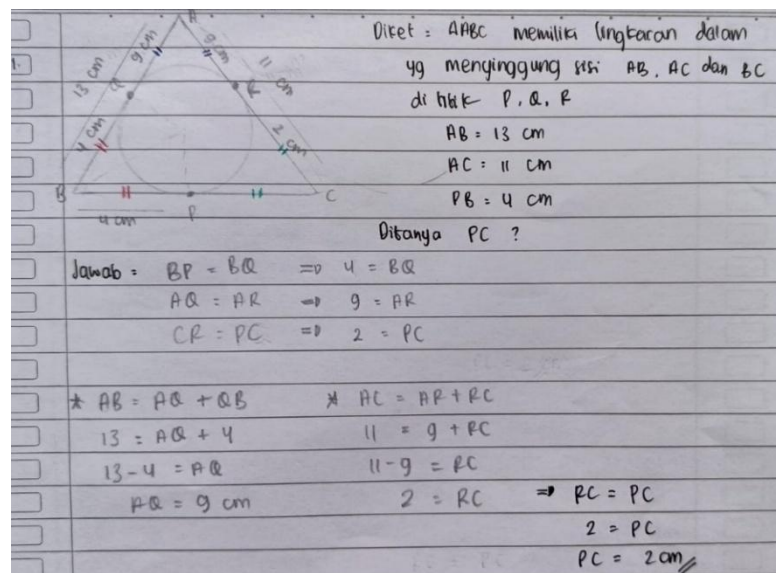 1.
A
9 cm
9 cm
13 cm
11 cm
Q
R
4 cm
2 cm
B
C
4 cm
P
Diket : ΔABC memiliki lingkaran dalam
yg menyinggung sisi AB, AC dan BC
di titik P, Q, R
AB = 13 cm
AC = 11 cm
PB = 4 cm
Ditanya PC ?
Jawab = BP = BQ => 4 = BQ
AQ = AR => 9 = AR
CR = PC => 2 = PC
* AB = AQ + QB
13 = AQ + 4
13 - 4 = AQ
AQ = 9 cm
* AC = AR + RC
11 = 9 + RC
11 - 9 = RC
2 = RC
=> RC = PC
2 = PC
PC = 2 cm //